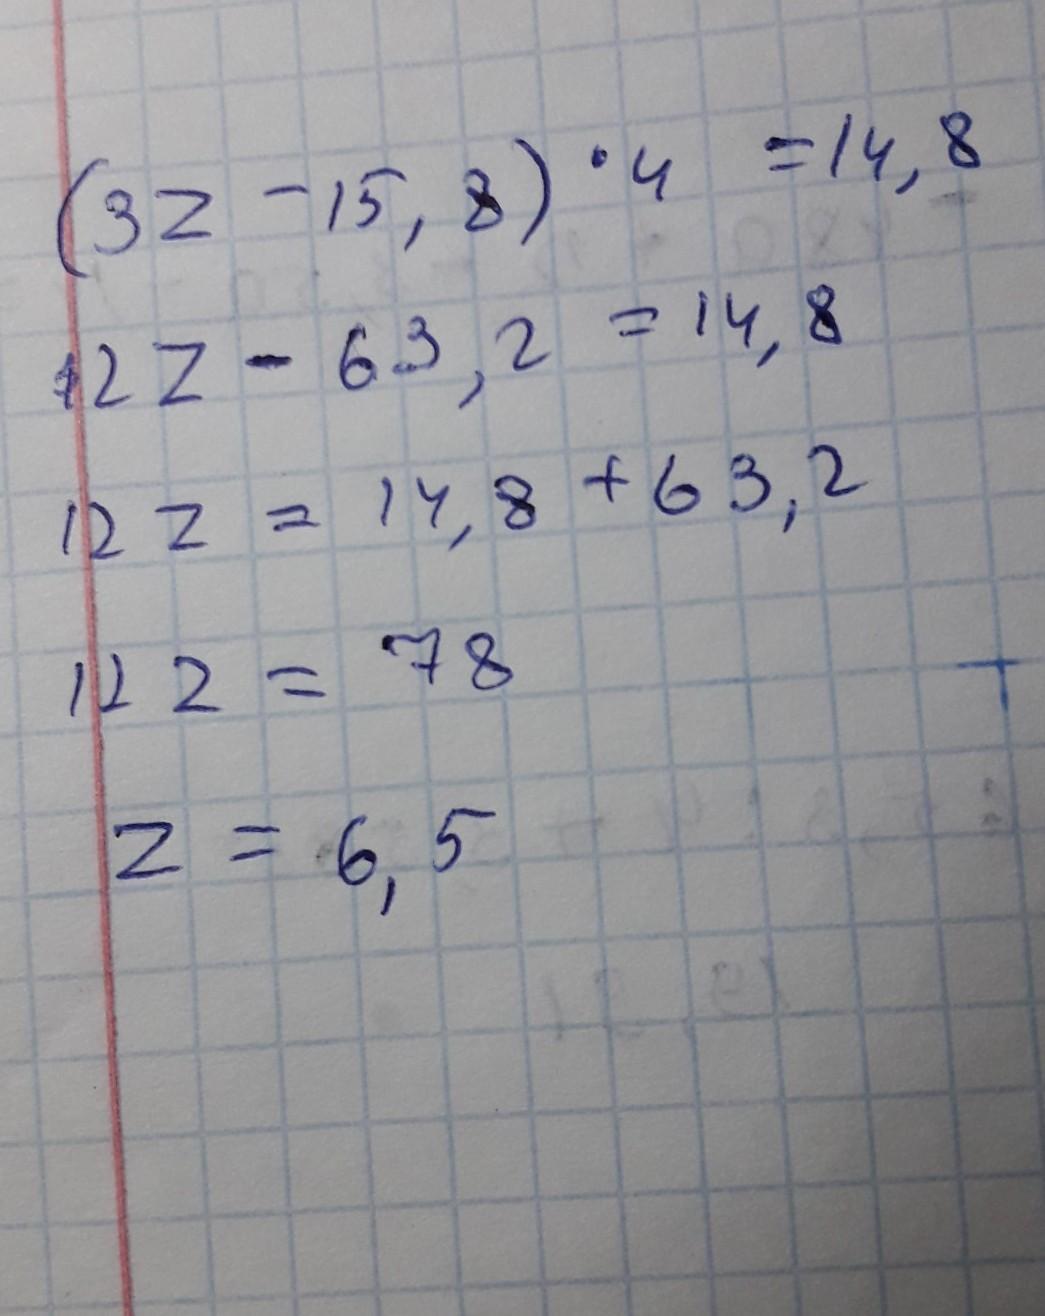 (3z - 15,8) · 4 = 14,8
12z - 63,2 = 14,8
12z = 14,8 + 63,2
12z = 78
z = 6,5